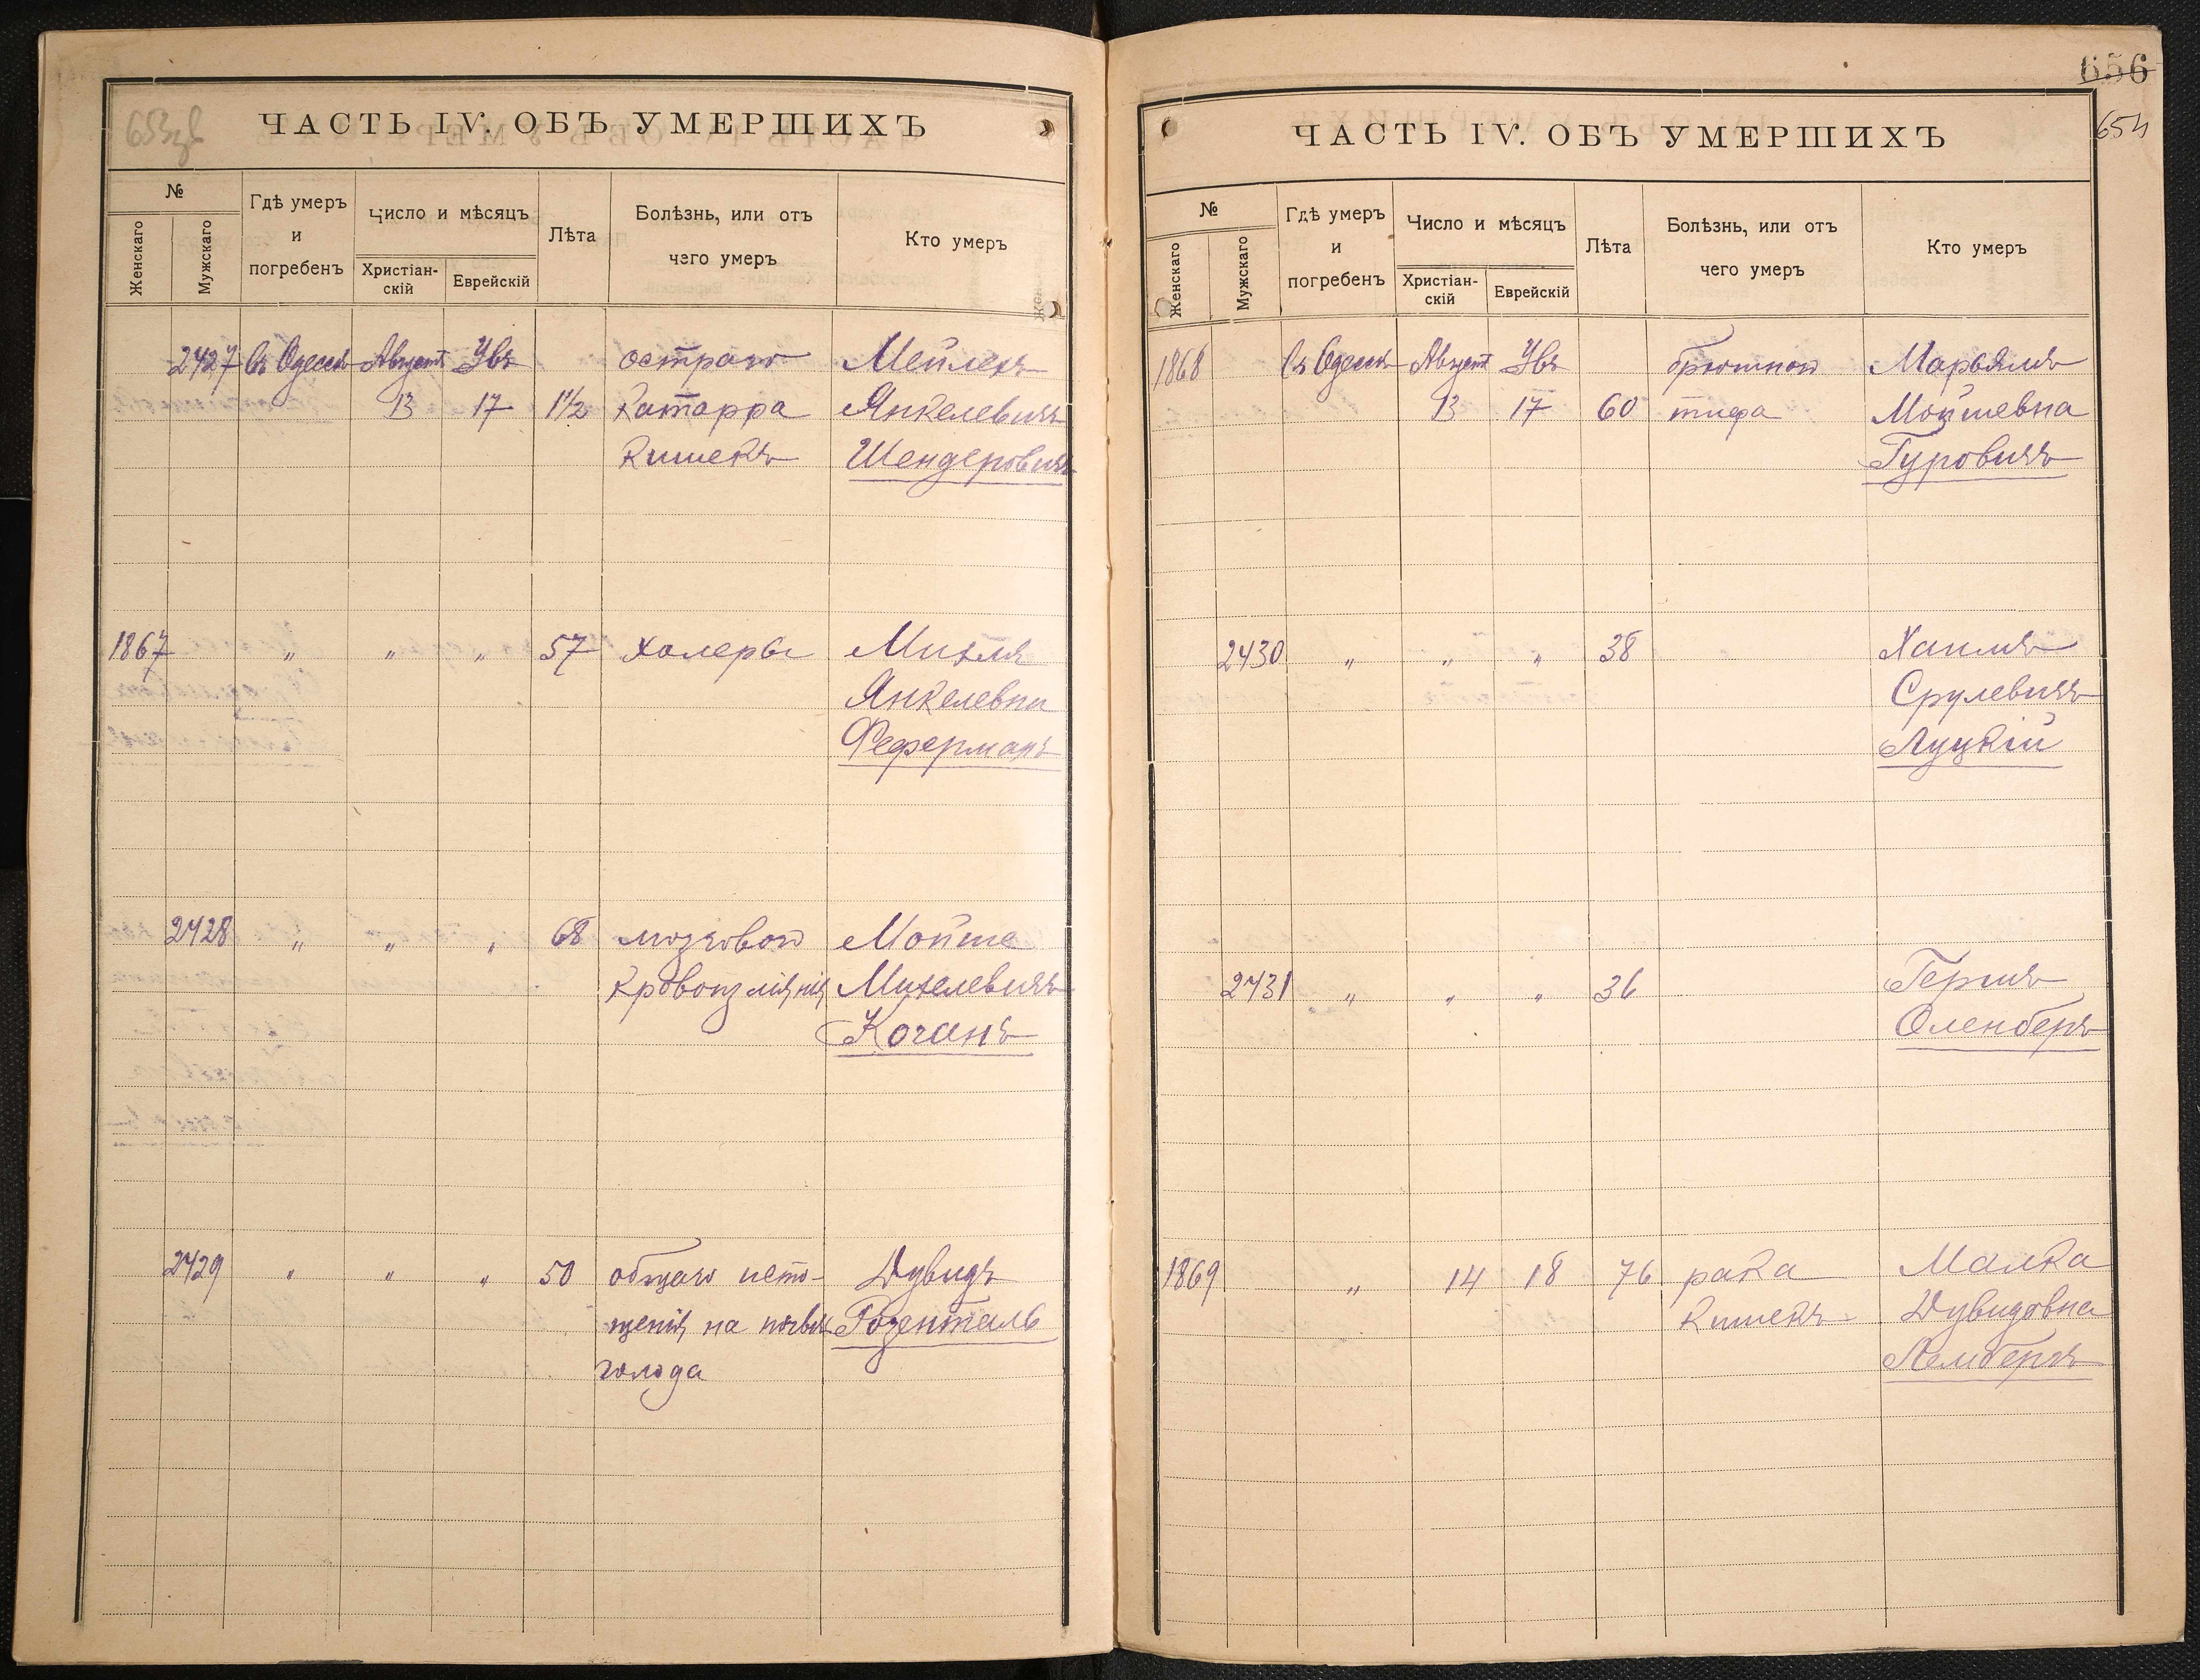 653зв
ЧАСТЬ IV. ОБЪ УМЕРШИХЪ
№
Женскаго
Мужскаго
Гдѣ умеръ
и
погребенъ
Число и мѣсяцъ
Христіан-
скій
Еврейскій
Лѣта
Болѣзнь, или отъ
чего умеръ
Кто умеръ
2427 Въ Одессѣ Августъ Увъ остраго Мейлехъ
13 17 1½ катарра Янкелевичъ
кишекъ Шендеровичъ
1867 " " " 57 холеры Михля
Янкелевна
Феферманъ
2428 " " " 68 мозговой Мойше
кровоизліянія Михелевичъ
Коганъ
2429 " " " 50 общаго исто- Дувидъ
щенія на почвѣ Розенталь
голода
656
654
ЧАСТЬ IV. ОБЪ УМЕРШИХЪ
№
Женскаго
Мужскаго
Гдѣ умеръ
и
погребенъ
Число и мѣсяцъ
Христіан-
скій
Еврейскій
Лѣта
Болѣзнь, или отъ
чего умеръ
Кто умеръ
1868 Въ Одессѣ Августъ Увъ брюшной Марьямъ
13 17 60 тифа Мойшевна
Гуровичъ
2430 " " " 38 Хаимъ
Срулевичъ
Луцкій
2431 " " " 36 Гершъ
Оленберъ
1869 " 14 18 76 рака Малка
кишекъ Дувидовна
Лембергъ